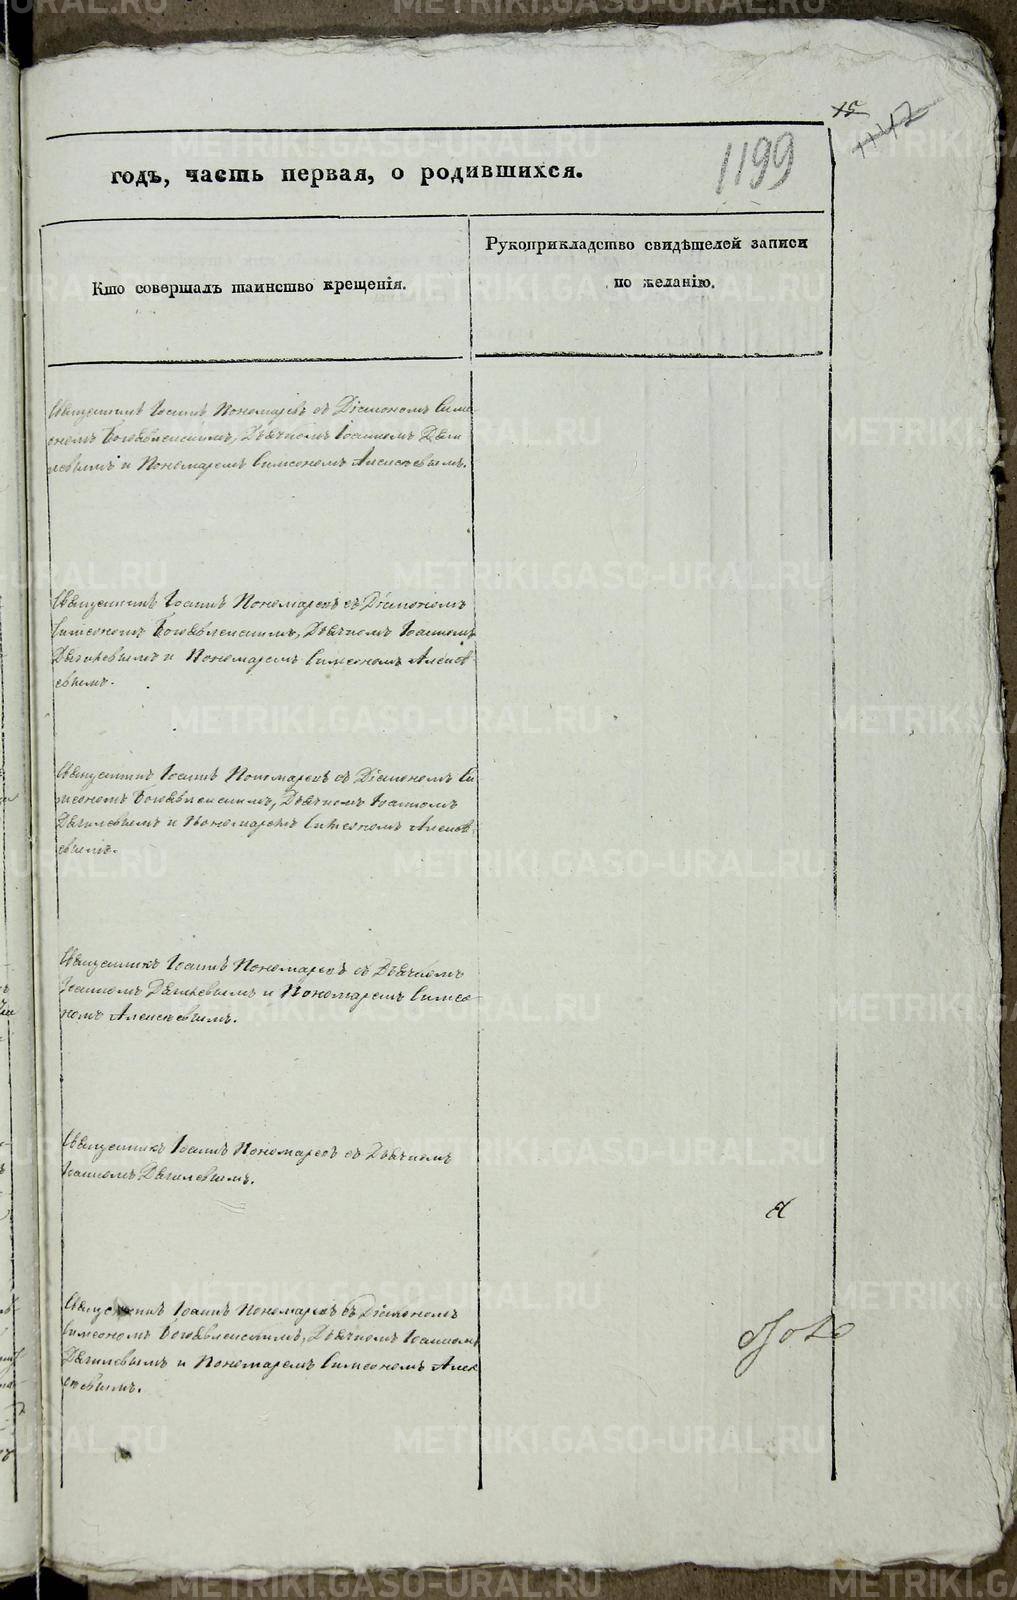 15
1147
1199
годъ, часть первая, о родившихся.
Кто совершалъ таинство крещенія.
Рукоприкладство свидѣтелей записи
по желанію.
Священникъ Іоаннъ Пономаревъ съ Діакономъ Симе-
ономъ Богоявленскимъ, Дьячкомъ Іоанномъ
и Пономаремъ Симеономъ Алексѣевымъ.
Священникъ Іоаннъ Пономаревъ съ Діакономъ
Симеономъ Богоявленскимъ, Дьячкомъ Іоанномъ
и Пономаремъ Симеономъ Алексѣ-
евымъ.
Священникъ Іоаннъ Пономаревъ съ Діакономъ Си-
меономъ Богоявленскимъ, Дьячкомъ Іоанномъ
Дягилевымъ и Пономаремъ Симеономъ Алексѣ-
евымъ.
Священникъ Іоаннъ Пономаревъ съ Дьячкомъ
Іоанномъ Дягилевымъ и Пономаремъ Симео-
номъ Алексѣевымъ.
Священникъ Іоаннъ Пономаревъ съ Дьячкомъ
Іоанномъ Дягилевымъ.
Священникъ Іоаннъ Пономаревъ съ Діакономъ
Симеономъ Богоявленскимъ, Дьячкомъ Іоанномъ
Дягилевымъ и Пономаремъ Симеономъ Алек-
сѣевымъ.
METRIKI.GASO-URAL.RU